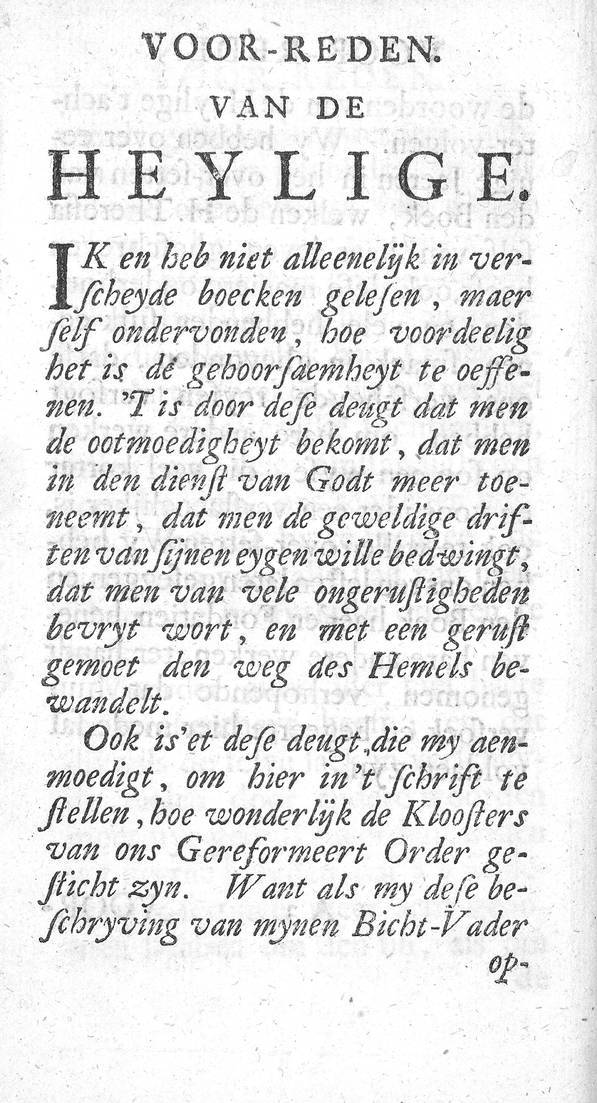 VOOR-REDEN.
VAN DE
HEYLIGE.
IK en heb niet alleenelijk in ver-
ſcheyde boecken geleſen, maer
ſelf ondervonden, hoe voordeelig
het is de gehoorſaemheyt te oeffe-
nen. 'T is door deſe deugt dat men
de ootmoedigheyt bekomt, dat men
in den dienſt van Godt meer toe-
neemt, dat men de geweldige drif-
ten van ſijnen eygen wille bedwingt,
dat men van vele ongeruſtigheden
bevryt wort, en met een geruſt
gemoet den weg des Hemels be-
wandelt.
Ook is'et deſe deugt, die my aen-
moedigt, om hier in't ſchrift te
ſtellen, hoe wonderlijk de Klooſters
van ons Gereformeert Order ge-
ſticht zyn. Want als my deſe be-
ſchryving van mynen Bicht-Vader
op-